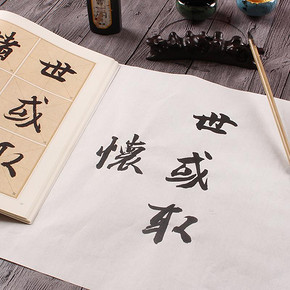 世或取
懷
世或取
諸